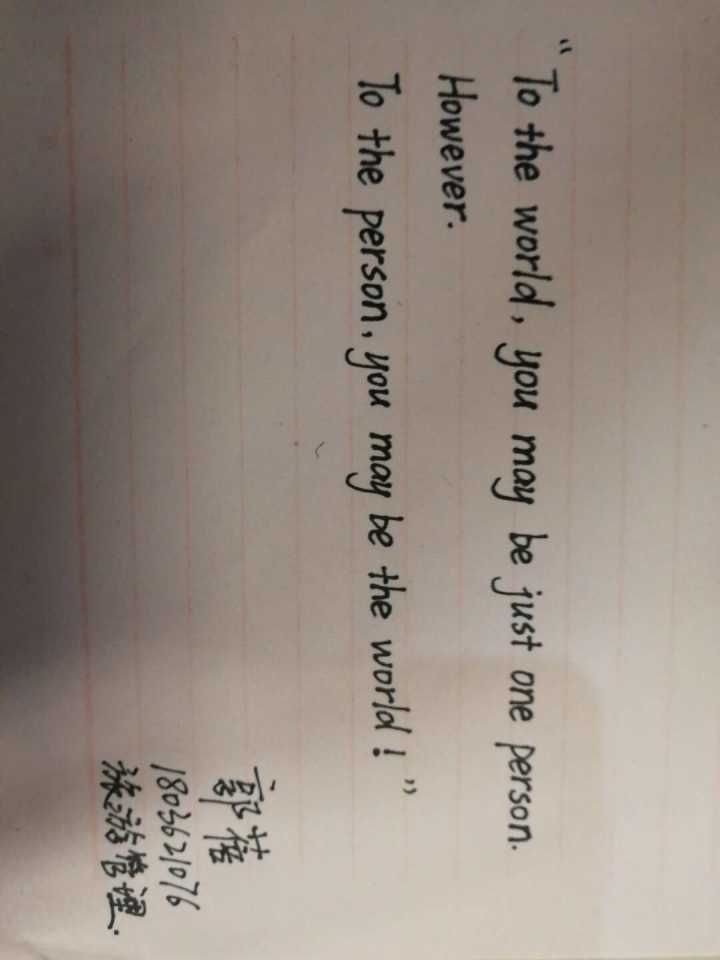 “To the world, you may be just one person.
However.
To the person, you may be the world!”
郭蓓
1803621076
旅游管理.